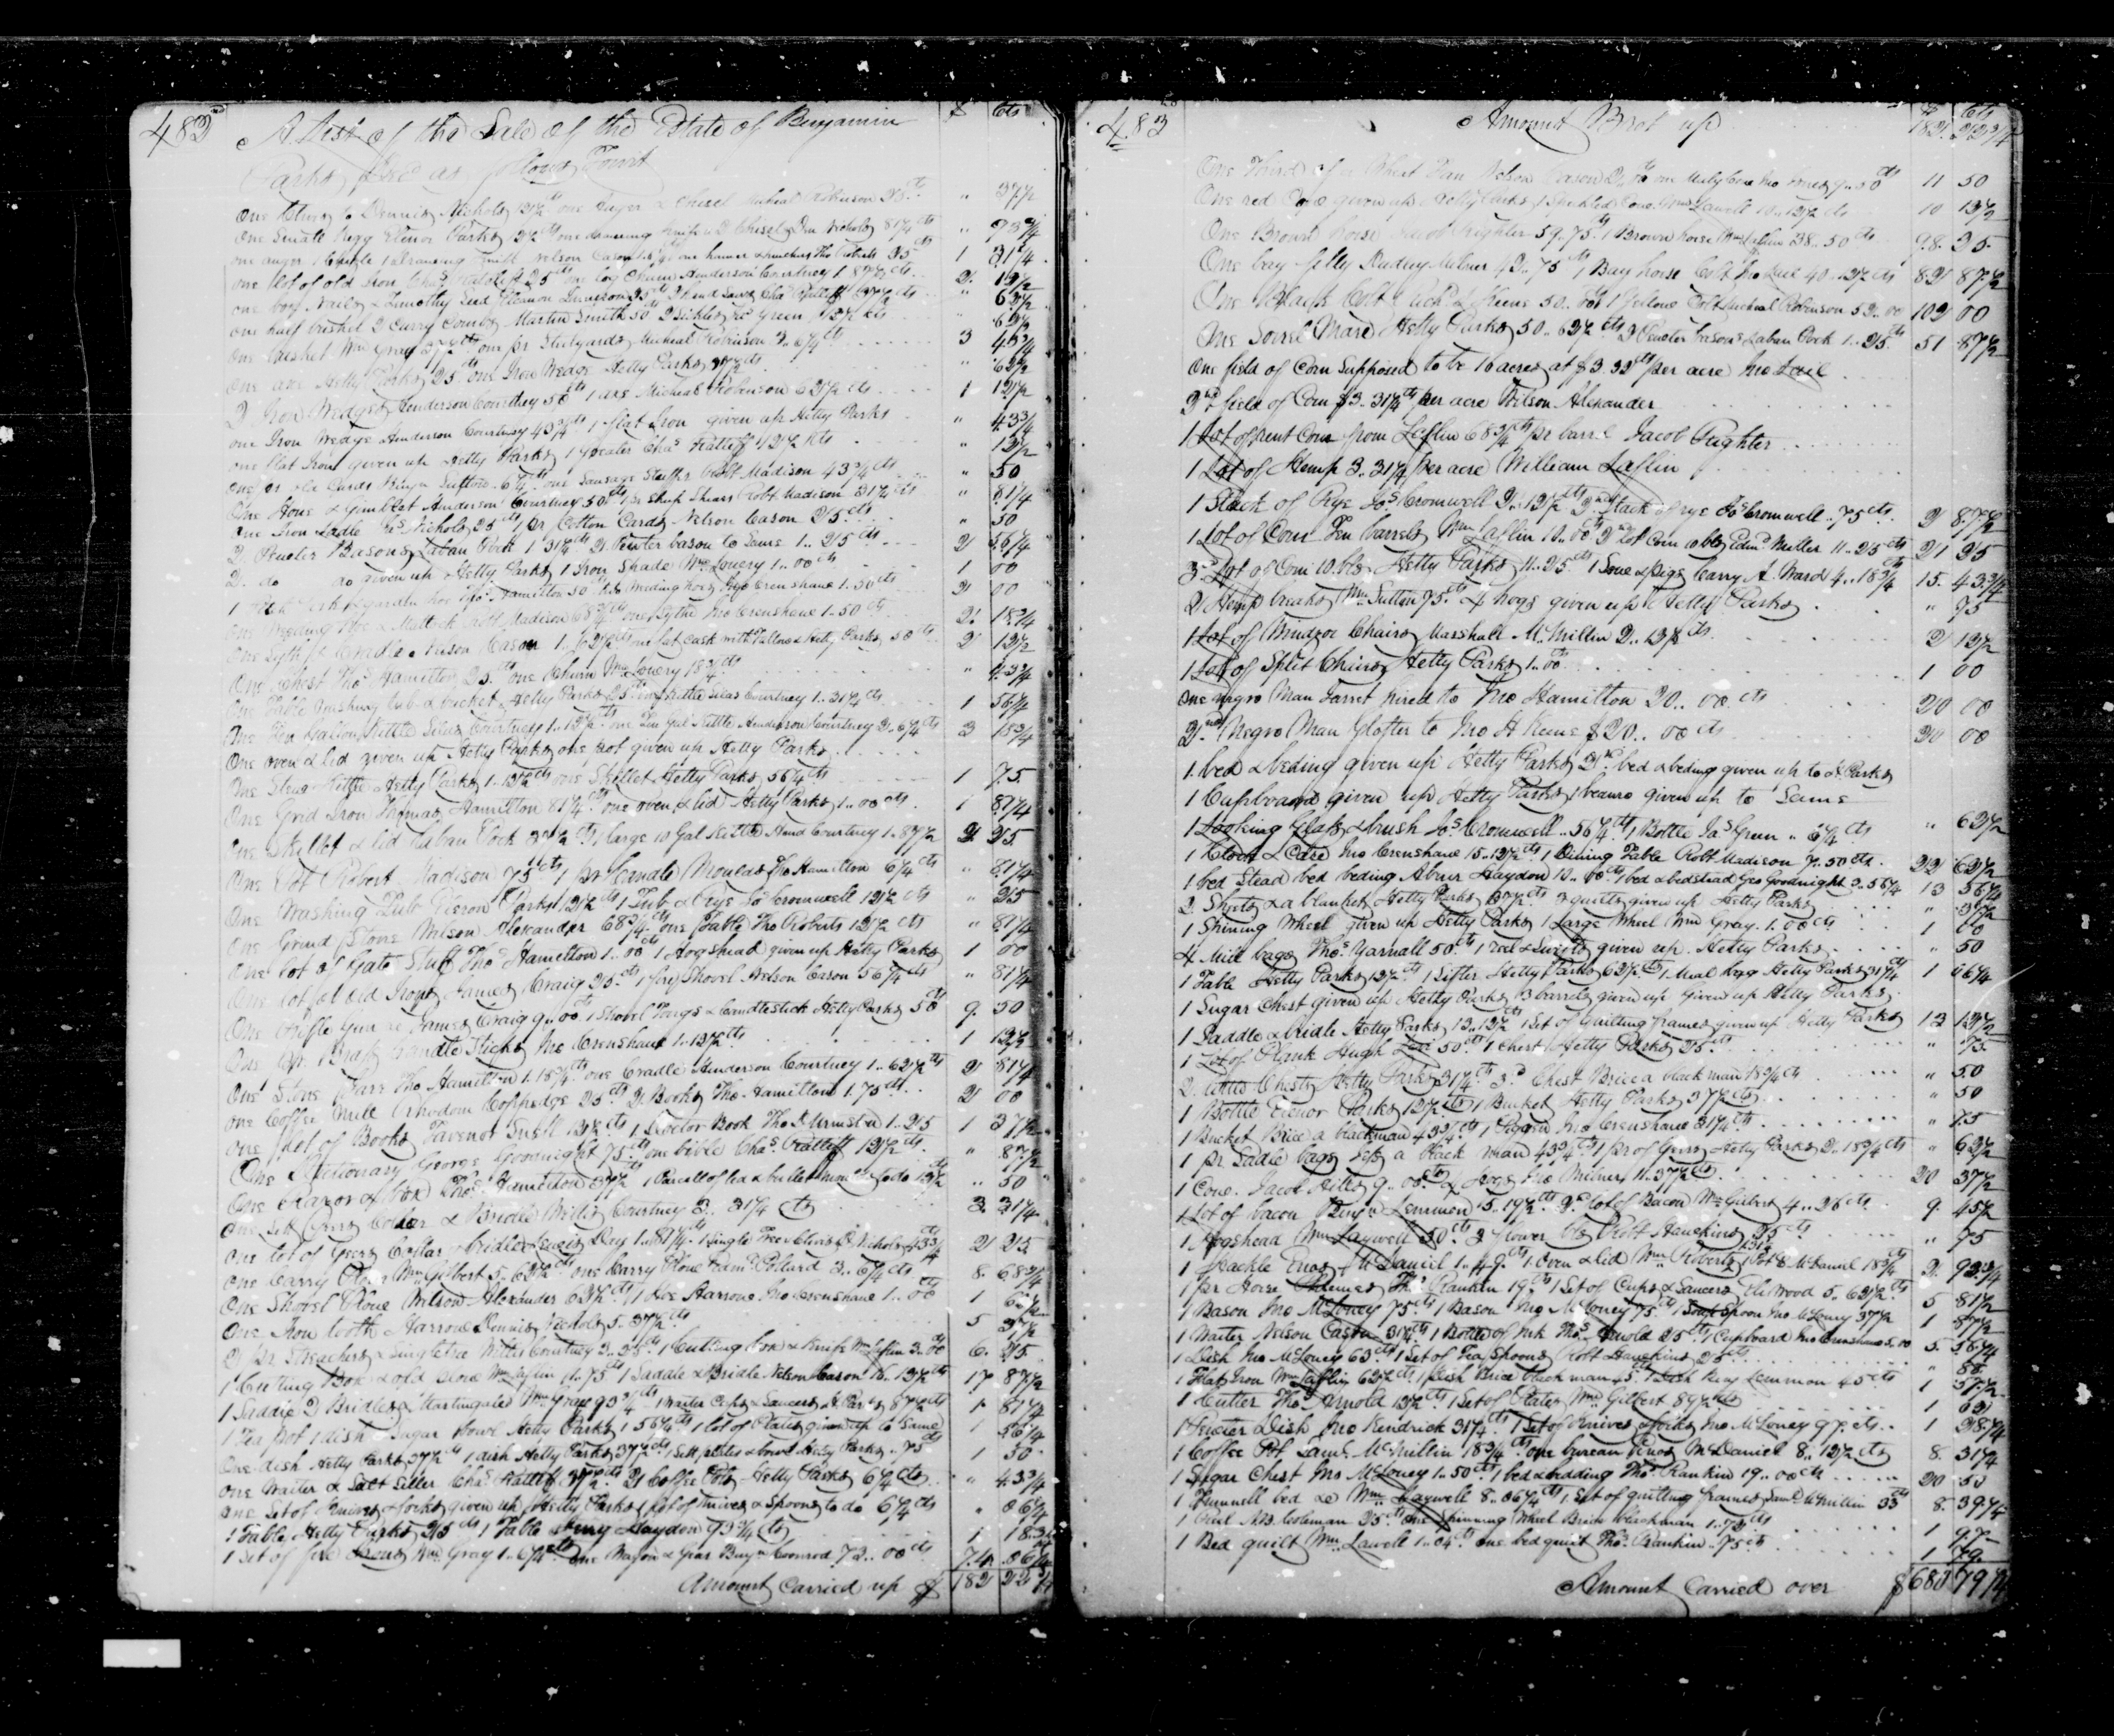 482
A List of the Sale of the Estate of Benjamin $ Cts
Parks Decd as follows Towit
One to Dennis Nichols 12½ cts one Auger & Chisel Micheal Robinson 25 cts " 37½
One Small Kegg Elenor Parks 12½ cts one drawing knife & 2 Chisels Den Nichols 81¼ cts " 93¾
one auger 1 Chisle 1 drawing knife Nelson Cason one hamer & Tho Roberts 25 cts 1 31¼
one lot of old Iron Chas Ratoliff 25 cts one log Chain Anderson Courtney 1.87½ cts 2. 12½
one box Nails & Timothy Seed 25 cts 1 hand Saw Chas Ratliff 37½ cts " 62½
one half bushel 2 Curry Combs Martin Smith 50 cts 2 Sickles Green 12½ cts " 62½
One Wm Gray 37½ cts one pr Steelyards Micheal Robinson 3..6¼ cts 3 43¾
One axe Hetty Parks 25 cts one Iron Wedge Hetty Parks 37½ cts " 62½
2 Iron Wedges Henderson Courtney 50 cts 1 axe Micheal Robinson 62½ cts 1 12½
one Iron Wedge Anderson Courtney 43¾ cts 1 flat Iron given up Hetty Parks " 43¾
one flat Iron given up Hetty Parks 1 Chas Ratleff 12½ cts " 12½
One pr old Cards Benjn Sutton 6¼ cts one Sausage Stuffer Robt Madison 43¾ cts " 50
One Hone & Gimblet Anderson Courtney 50 cts 1 pr Shep Shears Robt Madison 31¼ cts " 81¼
One Iron Ladle Nichols 25 cts 1 pr Cotton Cards Nelson Cason 25 cts " 50
2 Peuter Basons Laban Pock 1.31¼ cts 2 Pewter bason to Same 1..25 cts 2 56¼
2. do do given up Hetty Parks 1 Iron Shade Wm Lowery 1..00 cts 1 00
1 & garden hoe Thos Hamilton 50 cts Weeding hoes Crenshaw 1.50 cts 2 00
One Weeding Hoe & Mattock Robt Madison 68¾ cts one Sythe Jno Crenshaw 1.50 cts 2. 18¾
One Syth & Cradle Nelson Cason 1..62½ cts one fat Cask with Tallow Hetty Parks 50 cts 2 12½
One Chest Thos Hamilton 25 cts one Churn Wm Lowery 18¾ cts " 43¾
One Table Washing tub & bucket Hetty Parks 25 cts one kettle Silas Courtney 1..31¼ cts 1 56¼
One Ten Gallon Kettle Silas Courtney 1..12½ cts one Ten Gal Kettle Henderson Courtney 2..6¼ cts 3 18¾
One oven & lid given up Hetty Parks one pot given up Hetty Parks
One Stew Kettle Hetty Parks 1..12½ cts one Skillet Hetty Parks 56¼ cts 1 75
One Grid Iron Thomas Hamilton 81¼ cts one oven & lid Hetty Parks 1..00 cts 1 81¼
One Skillet & lid Laban Pock 37½ cts 1 large 10 Gal Kettle Hend Courtney 1..87½ 2 25
One Pot Robert Madison 75 cts 1 pr Candle Moulds Tho Hamilton 6¼ cts " 81¼
One Washing Tub Parks 12½ cts 1 Tub & Rye Jos Cromwell 12½ cts " 25
One Grind Stone Wilson Alexander 68¾ cts one Table Tho Roberts 12½ cts " 81¼
One lot of Gate Stuff Thos Hamilton 1..00 cts 1 Hogshead given up Hetty Parks 1 00
One lot of old Irons James Craig 25 cts 1 fire Shovel Nelson Cason 56¼ cts " 81¼
One Rifle Gun James Craig 9..00 cts 1 Shovel Tongs & Candlestick Hetty Parks 50 cts 9. 50
One pr Brass Candle Sticks Jno Crenshaw 1..12½ cts 1 12½
One Stone Tho Hamilton 1.18¾ cts one Cradle Henderson Courtney 1..62½ cts 2 81¼
one Coffee Mill Rhodom Coppedge 25 cts 2 Books Tho. Hamilton 1.75 cts 2 00
One lot of Books 12½ cts 1 Doctor Book Tho 1..25 1 37½
One Dictionary George Goodnight 75 cts one bible Chas Ratliff 12½ cts " 87½
One Razor & box Thos Hamilton 37½ cts 1 Parcell of led & bullet to do 12½ " 50
One Sett Gears Coller & Bridle Willis Courtney 3.. 31¼ cts 3. 31¼
One lot of Gears Coller & bridle Lewis Dey 1..81¼ cts 1 Single Tree & Clevis D Nichols 43¾ 2 25
One Carry Plow Wm Gilbert 5..62½ cts one Barry Plow Edmd Pollard 3..6¼ cts 8. 68¾
One Shovel Plow Wilson Alexander 62½ cts 1 Hoe Harrow Jno Crenshaw 1..00 1 62½
One Iron tooth Harrow Dennis Nichols 5..37½ cts 5 37½
2 pr Streachers & Singletree Willis Courtney 3..25 cts 1 Cutting box & knife Wm Laflin 3..00 6. 25
1 Cutting Box & old plow Wm Laflin 1..75 cts 1 Saddle & Bridle Nelson Cason 16..12½ cts 17 87½
1 Saddle 2 Bridles & Martingales Wm Gray 93¾ cts 1 waiter Cups & Saucers H Parks 87½ cts 1. 81¼
1 Tea pot 1 dish Sugar bowl Hetty Parks 1 56¼ cts 1 lot of Plates given up to Same 1 56¼
One dish Hetty Parks 37½ cts 1 dish Hetty Parks 37½ cts 1 Sett plates & bowl Hetty Parks .75 cts 1 50
one Waiter & Salt Seller Chas Ratliff 37½ cts 2 Coffee Pots Hetty Parks 6¼ cts " 43¾
One Set of knives & forks given up Hetty Parks 1 lot of knives & Spoons to do 6¼ cts " 06¼
1 Table Hetty Parks 25 cts 1 Table Haydon 93¾ cts 1 18¾
1 Set of fire Wm Gray 1..6¼ cts one Wagon & Gear Benjn Conrod 73..00 cts 74 06¼
Amount Carried up $ 182 22¾
483
Amount Brot up $ Cts
182. 22¾
One Third of a Wheat Fan Nelson Cason 2..00 cts one Jno 9..50 cts 11 50
One red Cow given up Hetty Parks 1 Speckled Cow Wm Lawell 10..12½ cts 10 12½
One Brown horse Jacob Pighter 59..75 cts 1 Brown horse Wm Laflin 38..50 cts 98. 25
One bay filly Dudley Milner 42..75 cts 1 Bay horse Colt Jno Lail 40..12½ cts 82 87½
One Black Colt Richd Keene 50..00 cts 1 Yellow Colt Micheal Robinson 52..00 102 00
One Sorrel Mare Hetty Parks 50..62½ cts 2 Peuter basons Laban Pock 1..25 cts 51 87½
One field of Corn Supposed to be 16 acres at $3.33 cts per acre Jno Lail
2nd field of Corn $3..31¼ cts per acre Wilson Alexander
1 Lot of rent Corn from Laflin 68¾ cts pr barrel Jacob Pighter
1 Lot of Hemp 3..31¼ per acre William Laflin
1 Stack of Rye Jos Cromwell 2..12½ cts 2nd Stack of rye Jos Cromwell ..75 cts 2 87½
1 Lot of Corn Ten barrels Wm Laflin 10..00 cts 2d Lot Corn 10 bbs Edmd Miller 11..25 cts 21 25
3d Lot of Corn 10 bbs Hetty Parks 11..25 cts 1 Sow & pigs Carry A. Ward 4..18¾ cts 15. 43¾
2 Hemp breaks Wm Sutton 75 cts 4 hogs given up Hetty Parks " 75
1 Lot of Windsor Chairs Marshall McMillin 2..12½ cts 2 12½
1 Lot of Split Chairs Hetty Parks 1..00 1 00
One negro Man Jarret hired to Jno Hamilton 20..00 cts 20 00
2nd Negro Man Glofter to Jno H Keene $20..00 cts 20 00
1 bed & beding given up Hetty Parks 2nd bed & beding given up to H Parks
1 Cupboard given up Hetty Parks 1 beauro given up to Same
1 Looking Glass & brush Jos Cromwell ..56¼ cts 1 Bottle Jas Green " 6¼ cts " 62½
1 Clock & Case Jno Crenshaw 15..12½ cts 1 Dining Table Robt Madison 7..50 cts 22 62½
1 bed Stead bed beding Abner Haydon 10..00 cts 1 bed & bedstead Geo Goodnight 3..56¼ 13 56¼
2 Sheets & a blanket Hetty Parks 37½ cts 3 quilts given up Hetty Parks " 37½
1 Spining Wheel given up Hetty Parks 1 Large Wheel Wm Gray 1.00 cts 1 00
4 Mill bags Thos Yarnall 50 cts 1 reel & given up Hetty Parks " 50
1 Table Hetty Parks 12½ cts 1 Sifter Hetty Parks 62½ cts 1 Meal kegg Hetty Parks 31¼ cts 1 06¼
1 Sugar Chest given up Hetty Parks 3 barrels given up Given up Hetty Parks
1 Saddle & bridle Hetty Parks 13..12½ cts 1 Set of quilting frames given up Hetty Parks 13 12½
1 Lot of Plank Hugh 50 cts 1 Chest Hetty Parks 25 cts " 75
2 little Chests Hetty Parks 31¼ cts 3d Chest Brice a black man 18¾ cts " 50
1 Bottle Elenor Parks 12½ cts 1 Bucket Hetty Parks 37½ cts " 50
1 Bucket Brice a blackman 43¾ cts 1 Jno Crenshaw 31¼ cts " 75
1 pr Saddle bags a black man 43¾ cts 1 pr of Gears Hetty Parks 2..18¾ cts " 62½
1 Cow Jacob Hilts 9..00 cts & Hogs Jno Milner 11..37½ cts 20 37½
1 Lot of bacon Benjn Lemmon 5..19½ cts 2d lot of Bacon Wm Gilbert 4..26 cts 9. 45½
1 Hogshead Wm Laywell 50 cts 2 flower bbs Robt Hawkins 25 cts " 75
1 Enos McDaniel 1..49 cts 1 Oven & lid Wm Roberts 1 Pot E McDaniel 18¾ 2. 93¾
1 pr Horse Thos Rankin 19 cts 1 Set of Cups & Saucers Eli Wood 5..62½ cts 5 81½
1 Bason Jno McLoney 75 cts 1 Bason Jno McLoney 75 cts 1 Spoon Jno McLoney 37½ 1 87½
1 Waiter Nelson Cason 31¼ cts 1 Bottle of Ink Thos Arnold 25 cts 1 Cupboard Jno Crenshaw 5.00 5. 56¼
1 Dish Jno McLoney 63 cts 1 Set of Tea Spoons Robt Hawkins 25 cts " 88
1 Flat Iron Wm Laflin 62½ cts 1 Dish Brice black man 45 cts 1 Dish Lemmon 45 cts 1 57½
1 Cutter Thos Arnold 12½ cts 1 Set of Plates Wm Gilbert 89½ cts 1 02
1 Peuter Dish Jno Kendrick 31¼ cts 1 Set of knives & forks Jno McLoney 97 cts 1 28¼
1 Coffee Pot Saml McMillin 18¾ cts one bureau Enos McDaniel 8..12½ cts 8. 31¼
1 Sugar Chest Jno McLoney 1..50 cts 1 bed & bedding Thos Rankin 19..00 cts 20 50
1 Trunnell bed &c Wm Laywell 8..06¼ cts 1 Set of quilting frames Saml McMillin 33 cts 8. 39¼
1 Coleman 25 cts one Spinning Wheel Brice blackman 1..72 cts 1 97
1 Bed quilt Wm Lawell 1..04 cts one bed quilt Thos Rankin ..75 cts 1 79
Amount Carried over $ 683 79¼